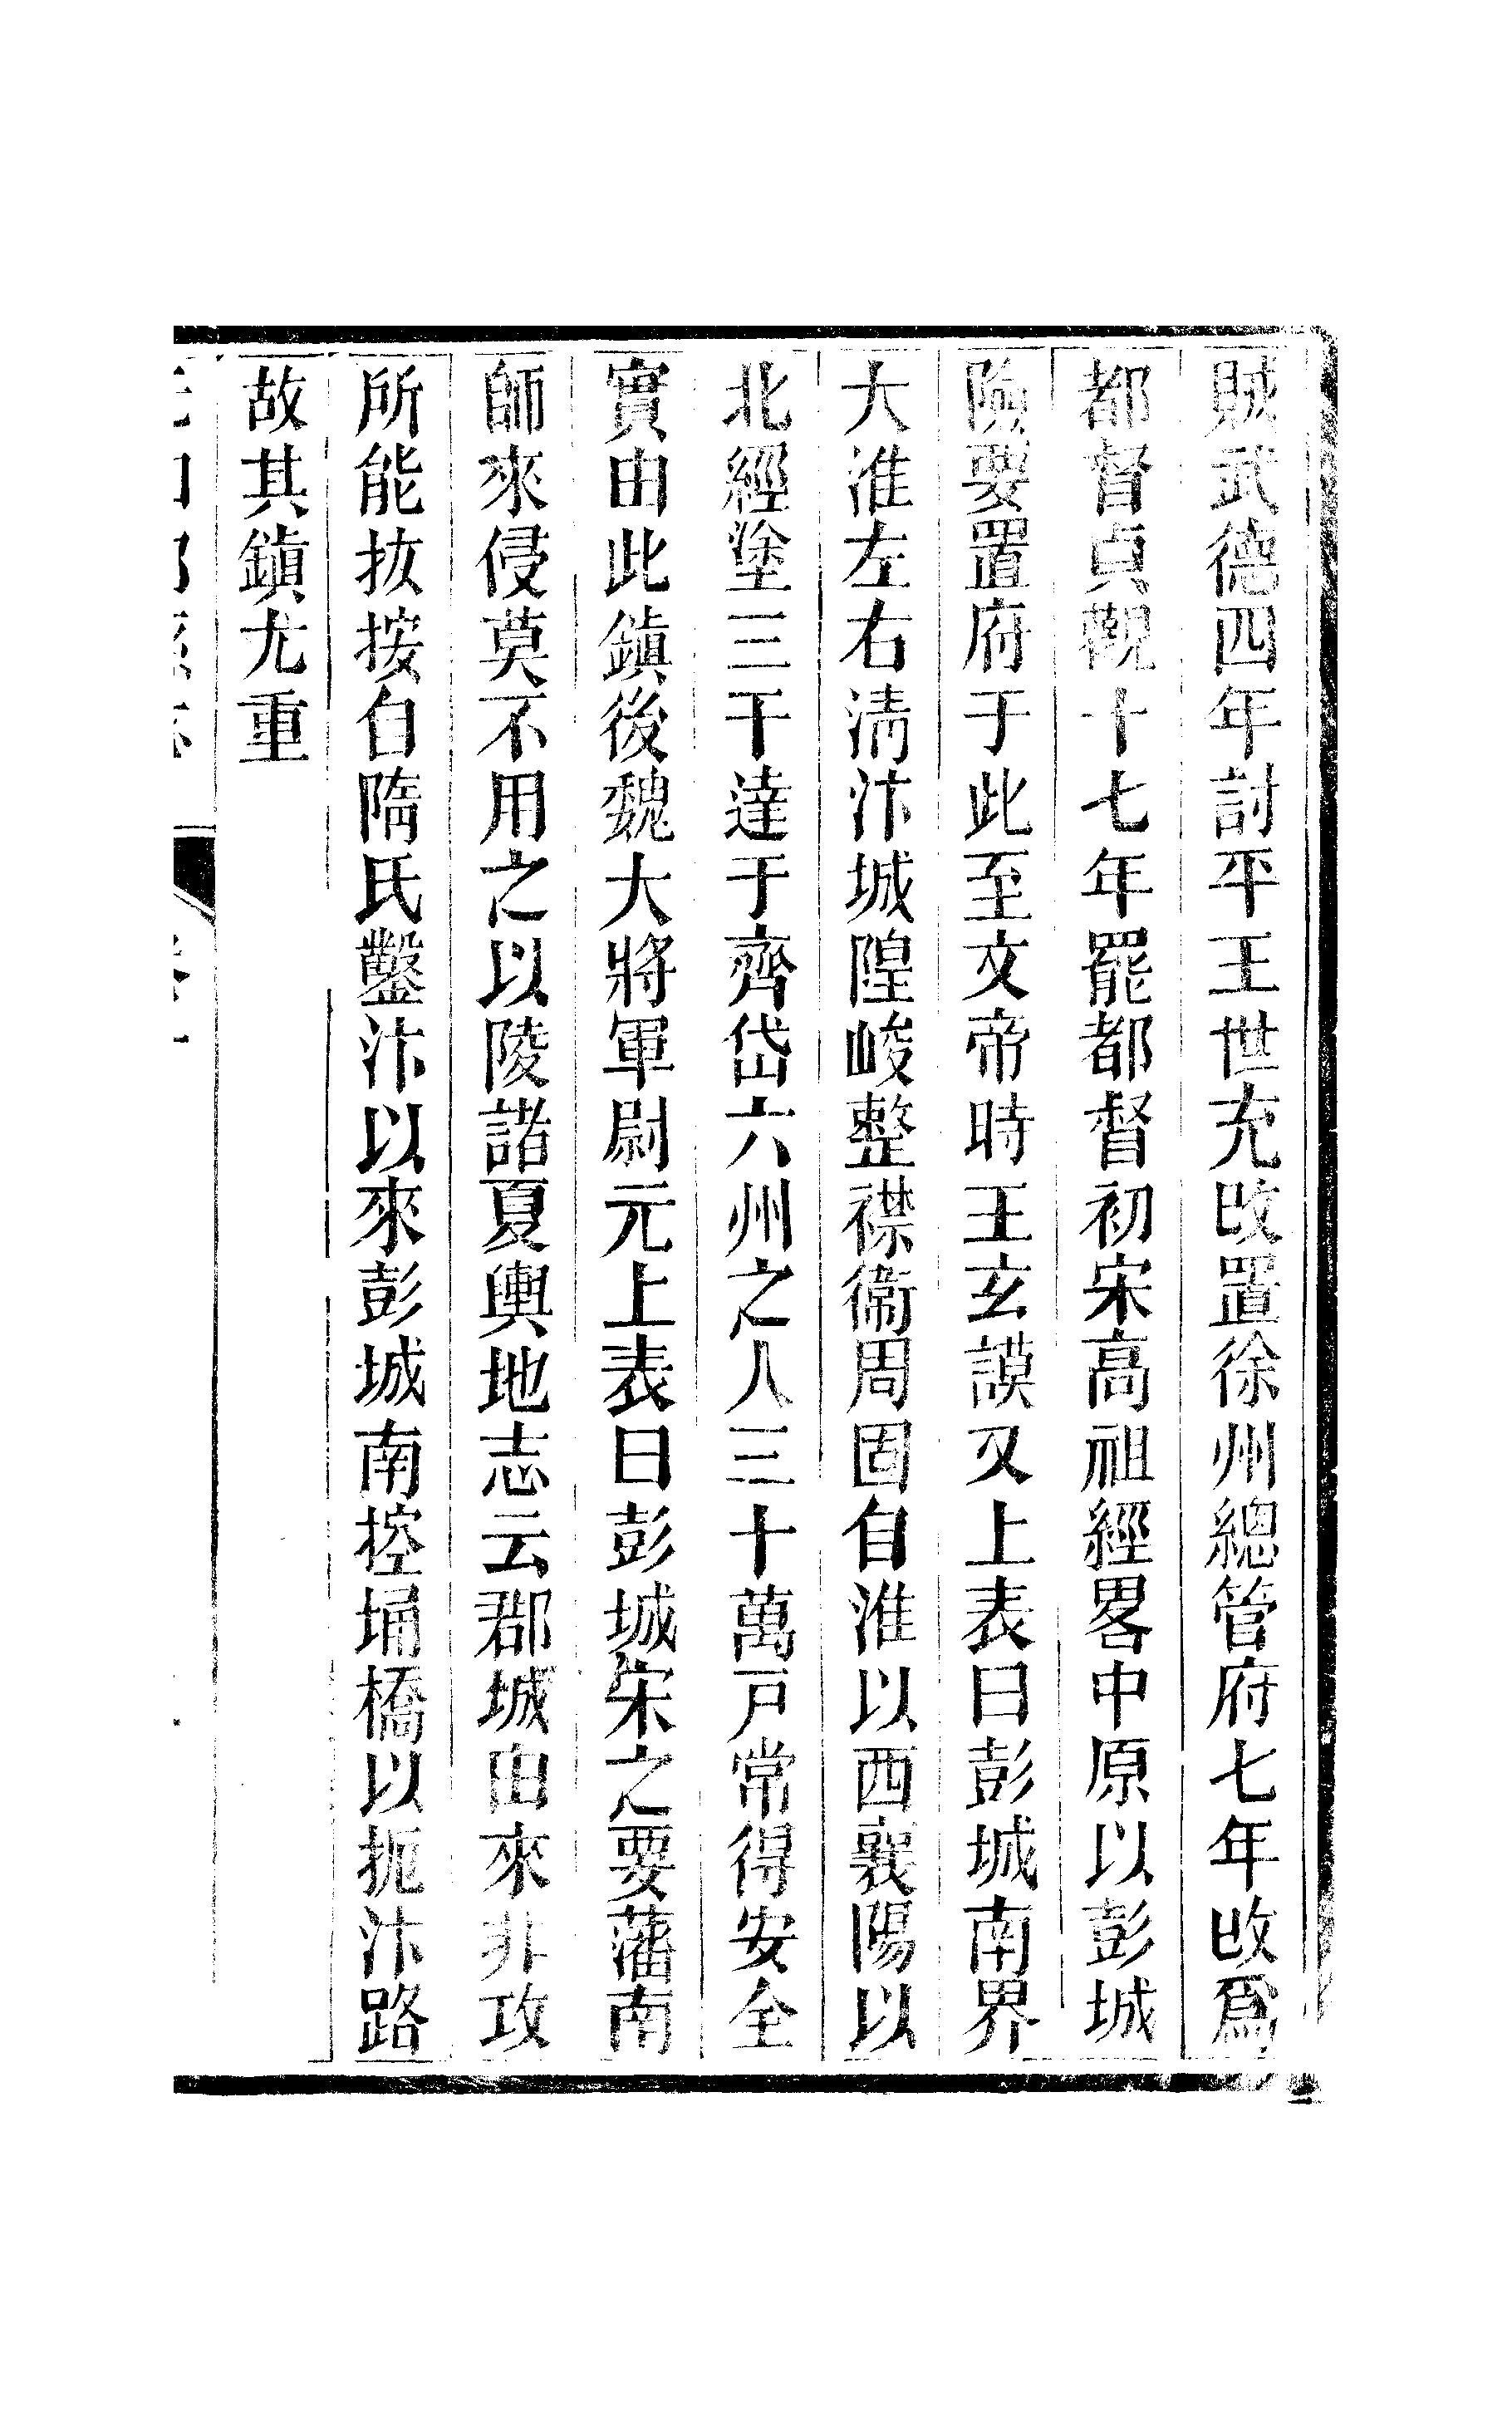 賊武德四年討平王世充改置徐州總管府七年改爲
都督貞觀十七年罷都督初宋高祖經畧中原以彭城
險要置府于此至文帝時王玄謨又上表曰彭城南界
大淮左右清汴城隍峻整襟衞周固自淮以西襄陽以
北經塗三千達于齊岱六州之人三十萬戸常得安全
實由此鎭後魏大將軍尉元上表曰彭城宋之要藩南
師來侵莫不用之以陵諸夏輿地志云郡城由來非攻
所能拔按自隋氏鑿汴以來彭城南控埇橋以扼汴路
故其鎭尤重